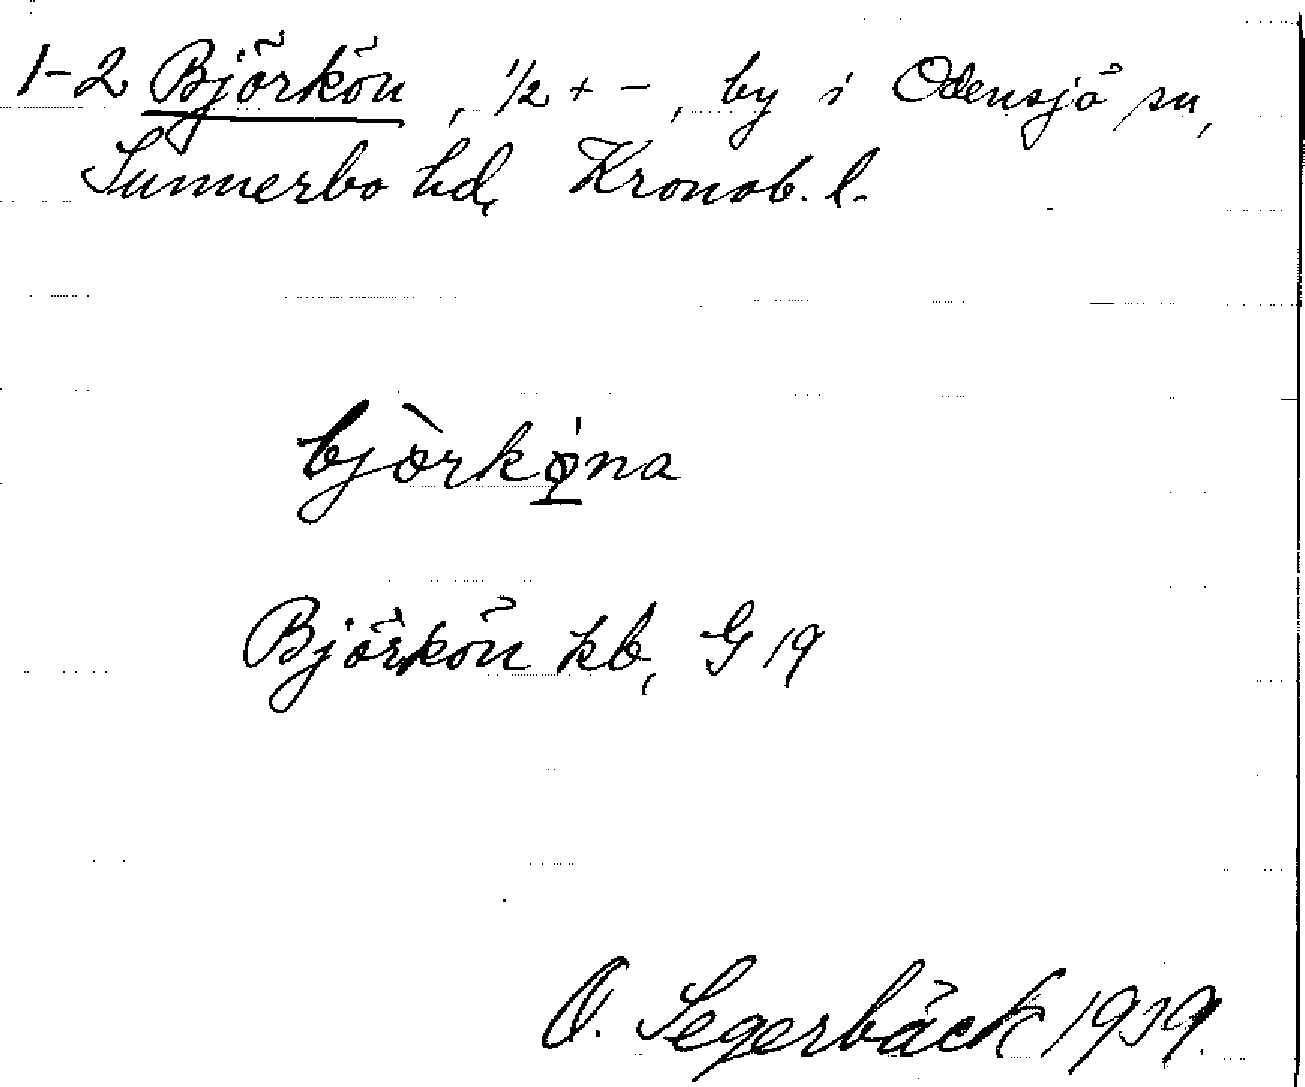 1-2 Björkön, 1/2 + -, by i Odensjö sn,
Sunnerbo hd, Kronob. l.
bjòrkǫ́na
Björkön kb, G 19
O. Segerbäck 1939.